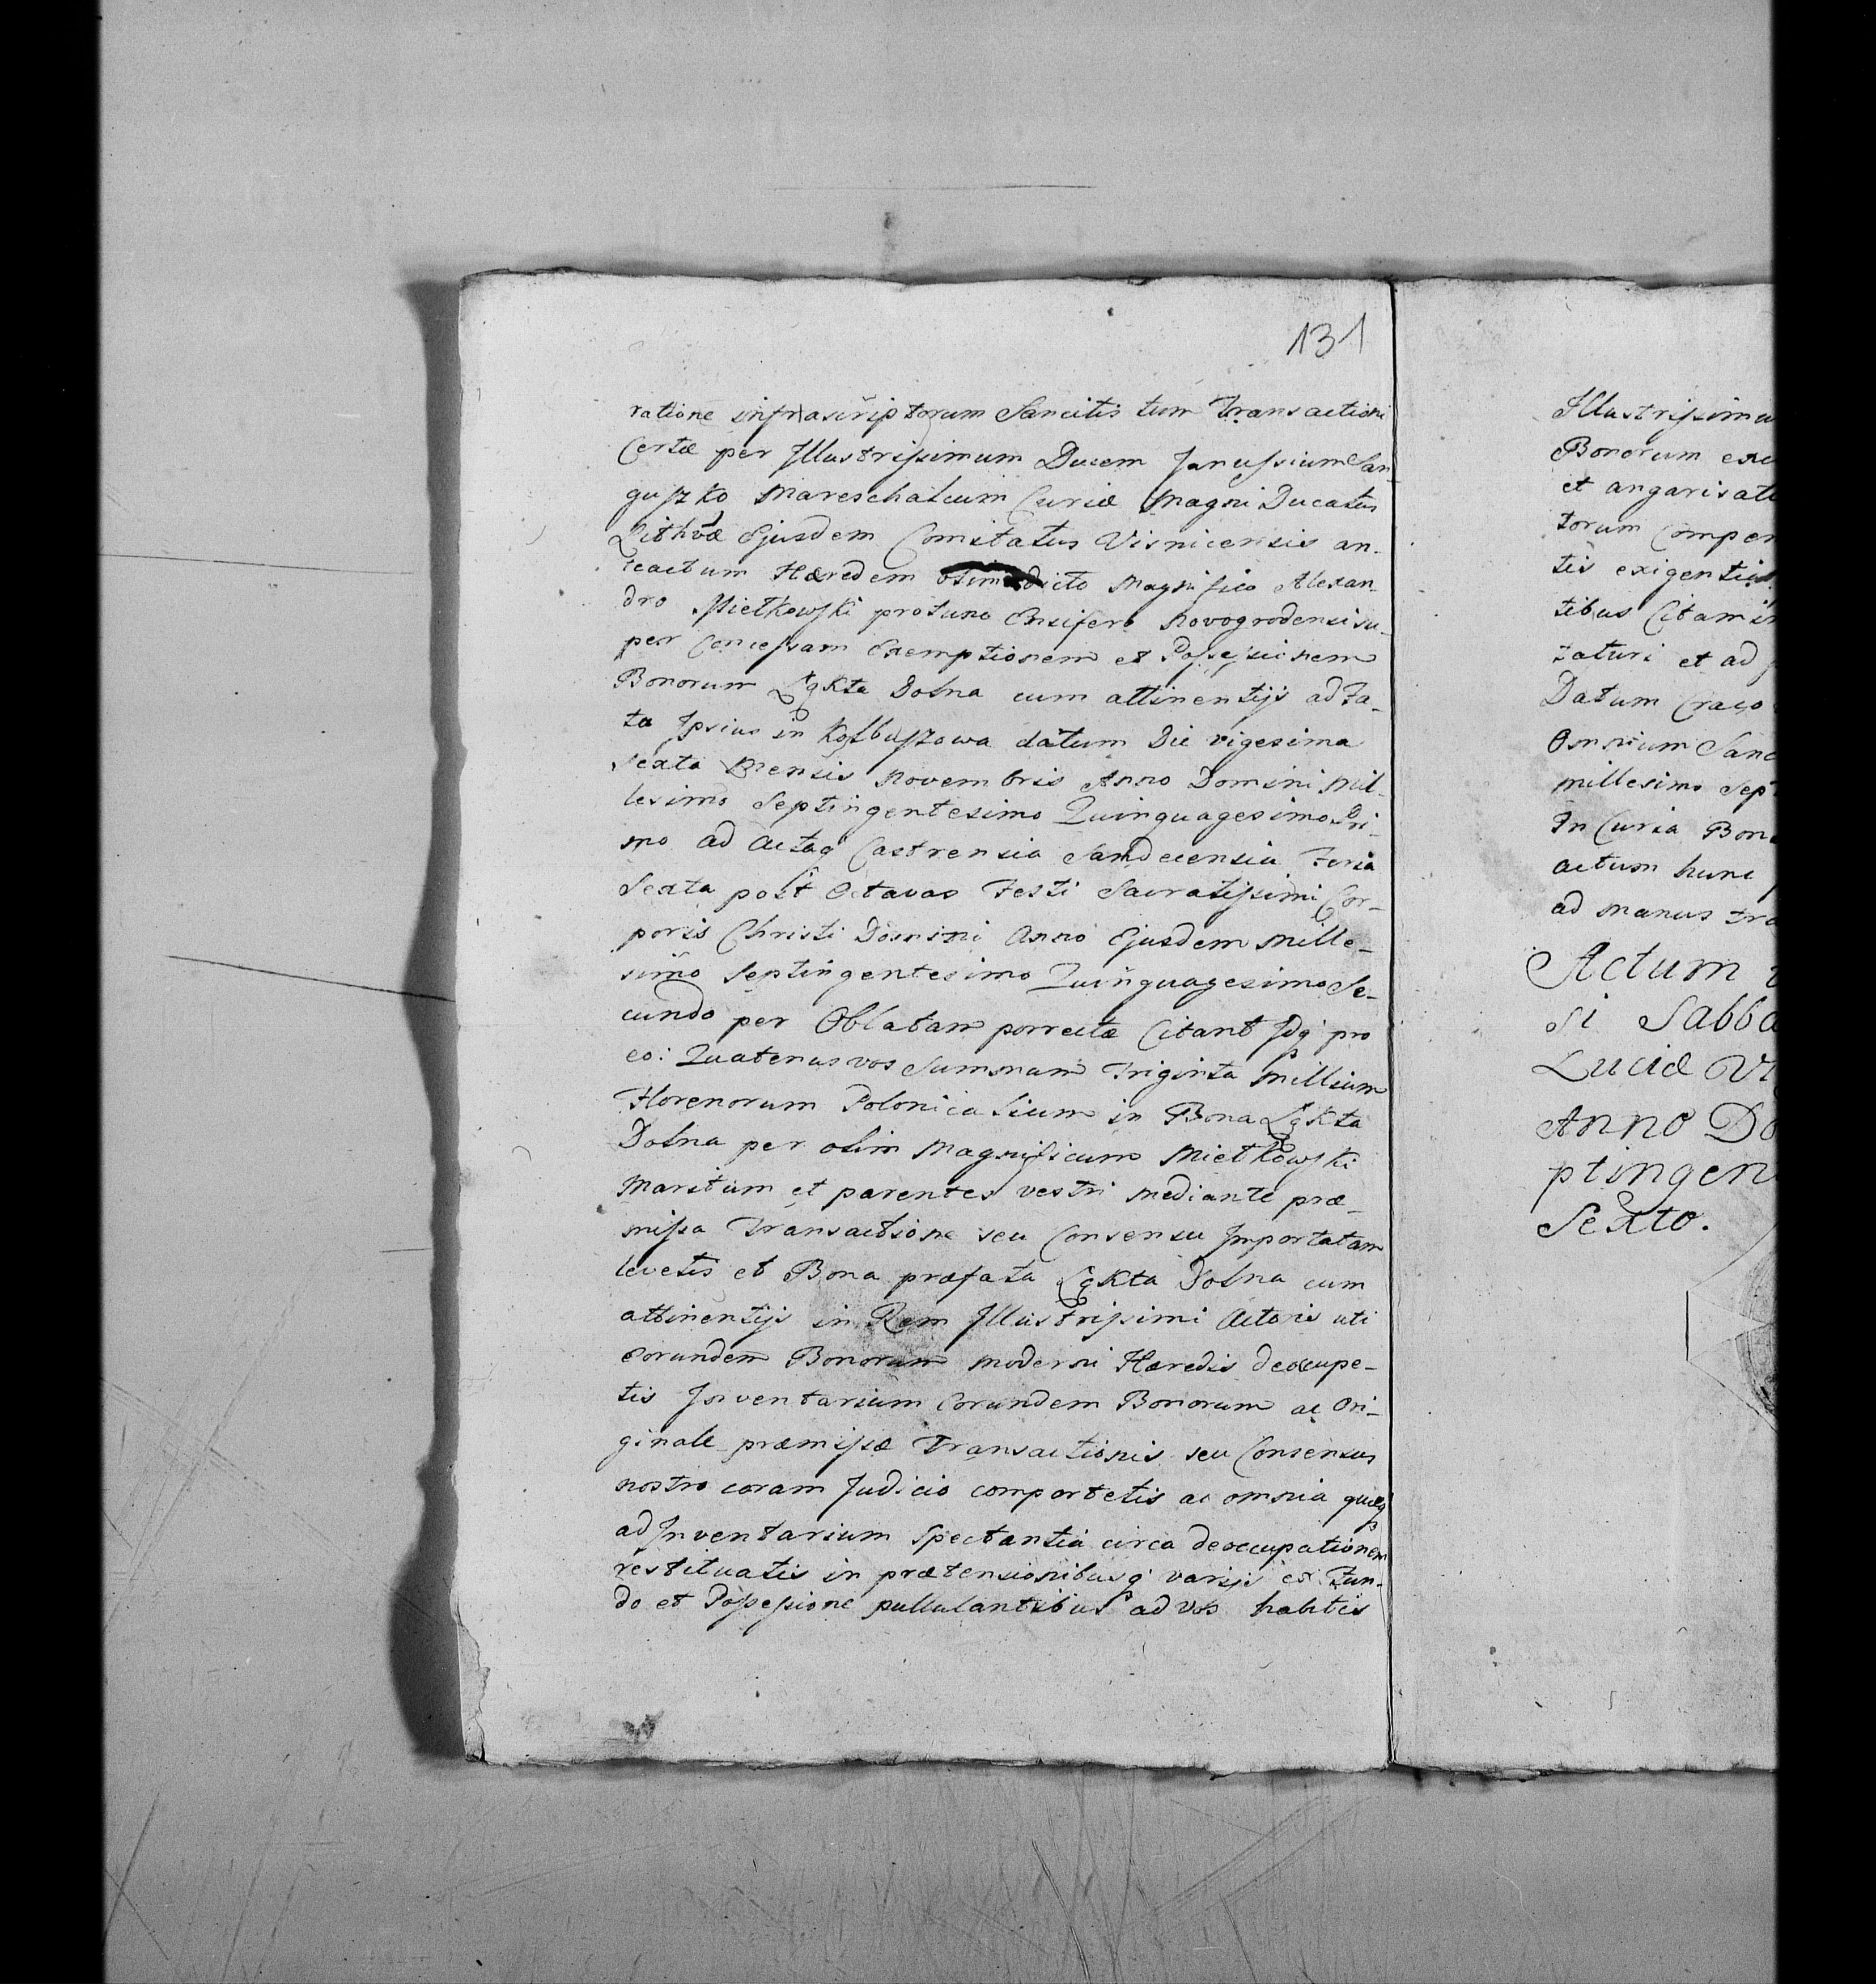 131
ratione infrascriptorum Sancitis tum Transactioni
Certæ per Illustrissimum Ducem Janussium San
guszko Mareschalcum Curiæ Magni Ducatus
Lithvæ Ejusdem Comitatus Visnicensis an-
teactum Hæredem olim dicto Magnifico Alexan-
dro Mietkowski protunc Ensifero Novogrodensi su-
per Concessam Exemptionem et Possessionem
Bonorum Łąkta Dolna cum attinentijs ad Fa-
ta Ipsius in Kolbuszowa datum Die vigesima
sexta Mensis Novembris Anno Domini Mil-
lesimo Septingentesimo Quinquagesimo Pri-
mo ad Acta Castrensia Sandecensia Feria
Sexta post Octavas Festi Sacratissimi Cor-
poris Christi Domini Anno Ejusdem Mille-
simo Septingentesimo Quinquagesimo Se-
cundo per Oblatam porrectæ Citant Idq pro
eo: Quatenus vos Summam Triginta Millium
Florenorum Polonicalium in Bona Łąkta
Dolna per olim Magnificum Mietkowski
Maritum et parentes vestri mediante præ-
missa Transactione seu Consensu Importatam
levetis et Bona præfata Łąkta Dolna cum
attinentijs in Rem Illustrissimi Actoris uti
eorundem Bonorum moderni Hæredis deoccupe-
tis Inventarium Eorundem Bonorum ac Ori-
ginale præmissæ Transactionis seu Consensus
nostro coram Judicio comportetis ac omnia quæq
ad Inventarium Spectantia circa deoccupationem
restituatis in prætensionibusq varijs ex Fun-
do et Possessione pullulantibus ad vos habitis
Illustrissimu
Bonorum
et angarisati
torum Compen
tis exigentia
tibus Citamin
taturi et ad
Datum Craco
Omnium Sanc
millesimo Sept
In Curia Bono
actum hunc
ad manus tra
Actum
si Sabba
Luciæ Vi
Anno Do
ptingen
Sexto.